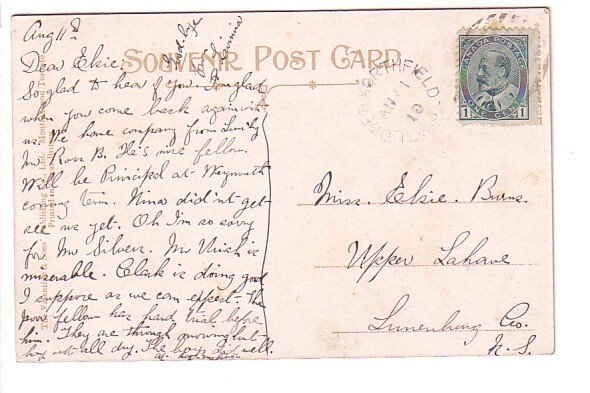 Aug 11th
Dear Elsie:
So glad to hear of you. I'm glad
when you come back again with
us. We have company from
Mr Ross B. He's nice fellow.
Will be Principal at Weymouth
coming term. Nina did'nt get
see us yet. Oh I'm so sorry
for Mr Silver. Mr is
miserable. Clark is doing good
I suppose as we can expect. The
poor fellow has hard trial before
him. They are through mowing but
hay not all dry. The boys did well.
SOUVENIR POST CARD
NORTHFIELD
AU 11
10
CANADA POSTAGE
1 ONE CENT 1
Miss. Elsie. Burns.
Upper Lahave
Lunenburg Co.
N.S.